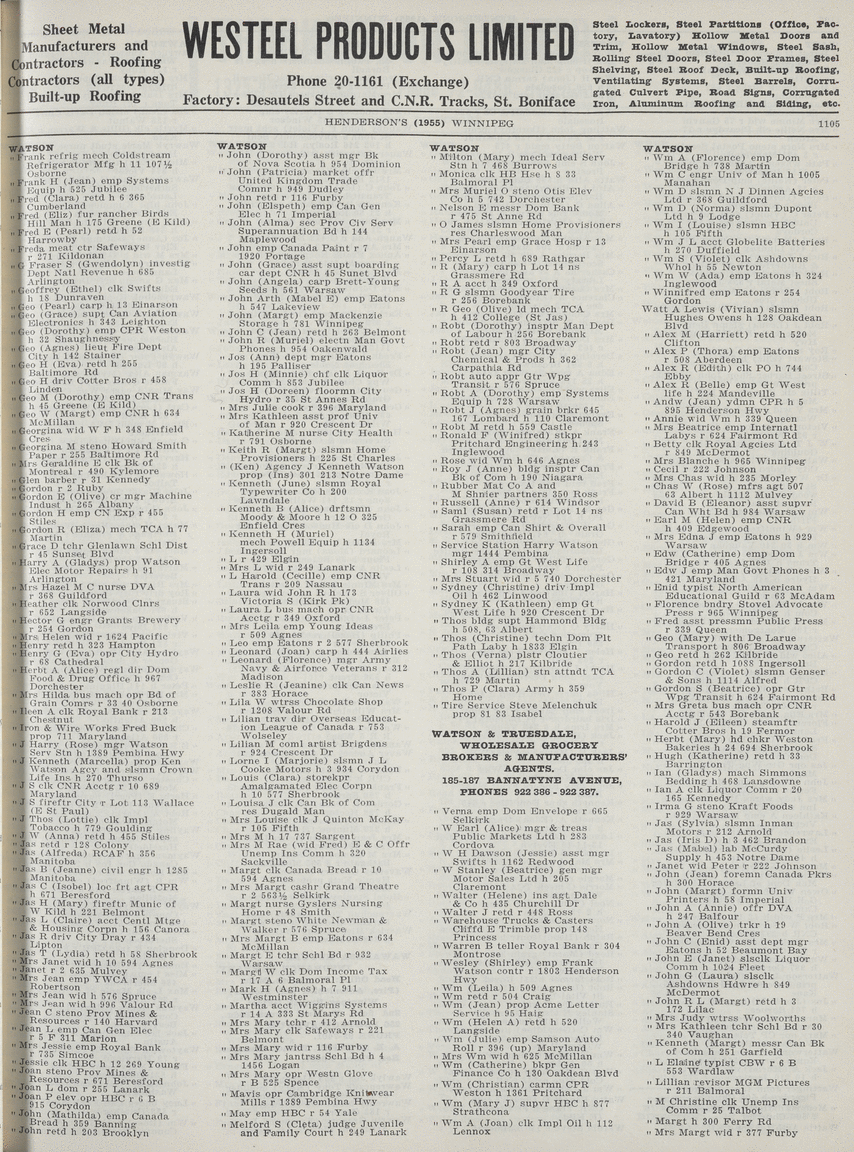 Sheet Metal
Manufacturers and
Contractors - Roofing
Contractors (all types)
Built-up Roofing
WESTEEL PRODUCTS LIMITED
Phone 20-1161 (Exchange)
Factory: Desautels Street and C.N.R. Tracks, St. Boniface
Steel Lockers, Steel Partitions (Office, Fac-
tory, Lavatory) Hollow Metal Doors and
Trim, Hollow Metal Windows, Steel Sash,
Rolling Steel Doors, Steel Door Frames, Steel
Shelving, Steel Roof Deck, Built-up Roofing,
Ventilating Systems, Steel Barrels, Corru-
gated Culvert Pipe, Road Signs, Corrugated
Iron, Aluminum Roofing and Siding, etc.
HENDERSON'S (1955) WINNIPEG
1105
WATSON
" Frank refrig mech Coldstream
Refrigerator Mfg h 11 107½
Osborne
" Frank H (Jean) emp Systems
Equip h 525 Jubilee
" Fred (Clara) retd h 6 365
Cumberland
" Fred (Eliz) fur rancher Birds
Hill Man h 175 Greene (E Kild)
" Fred E (Pearl) retd h 52
Harrowby
" Freda meat ctr Safeways
r 271 Kildonan
" G Fraser S (Gwendolyn) investig
Dept Natl Revenue h 685
Arlington
" Geoffrey (Ethel) clk Swifts
h 18 Dunraven
" Geo (Pearl) carp h 13 Einarson
" Geo (Grace) supt Can Aviation
Electronics h 343 Leighton
" Geo (Dorothy) emp CPR Weston
h 32 Shaughnessy
" Geo (Agnes) lieut Fire Dept
City h 142 Stainer
" Geo H (Eva) retd h 255
Baltimore Rd
" Geo H driv Cotter Bros r 458
Linden
" Geo M (Dorothy) emp CNR Trans
h 45 Greene (E Kild)
" Geo W (Margt) emp CNR h 634
McMillan
" Georgina wid W F h 348 Enfield
Cres
" Georgina M steno Howard Smith
Paper r 255 Baltimore Rd
" Mrs Geraldine E clk Bk of
Montreal r 490 Kylemore
" Glen barber r 31 Kennedy
" Gordon r 2 Ruby
" Gordon E (Olive) cr mgr Machine
Indust h 265 Albany
" Gordon H emp CN Exp r 455
Stiles
" Gordon R (Eliza) mech TCA h 77
Martin
" Grace D tchr Glenlawn Schl Dist
r 45 Sunset Blvd
" Harry A (Gladys) prop Watson
Elec Motor Repairs h 91
Arlington
" Mrs Hazel M C nurse DVA
r 368 Guildford
" Heather clk Norwood Clnrs
r 652 Langside
" Hector G engr Grants Brewery
r 254 Gordon
" Mrs Helen wid r 1624 Pacific
" Henry retd h 323 Hampton
" Henry G (Eva) opr City Hydro
r 68 Cathedral
" Herbt A (Alice) regl dir Dom
Food & Drug Office h 967
Dorchester
" Mrs Hilda bus mach opr Bd of
Grain Comrs r 33 40 Osborne
" Ileen A clk Royal Bank r 213
Chestnut
" Iron & Wire Works Fred Buck
prop 711 Maryland
" J Harry (Rose) mgr Watson
Serv Stn h 1389 Pembina Hwy
" J Kenneth (Marcella) prop Ken
Watson Agcy and slsmn Crown
Life Ins h 270 Thurso
" J S clk CNR Acctg r 10 689
Maryland
" J S fireftr City r Lot 113 Wallace
(E St Paul)
" J Thos (Lottie) clk Impl
Tobacco h 779 Goulding
" J W (Anna) retd h 455 Stiles
" Jas retd r 128 Colony
" Jas (Alfreda) RCAF h 356
Manitoba
" Jas B (Jeanne) civil engr h 1285
Manitoba
" Jas C (Isobel) loc frt agt CPR
h 671 Beresford
" Jas H (Mary) fireftr Munic of
W Kild h 221 Belmont
" Jas L (Claire) acct Centl Mtge
& Housing Corpn h 156 Canora
" Jas R driv City Dray r 434
Lipton
" Jas T (Lydia) retd h 58 Sherbrook
" Mrs Janet wid h 10 594 Agnes
" Janet r 2 635 Mulvey
" Mrs Jean emp YWCA r 454
Robertson
" Mrs Jean wid h 576 Spruce
" Mrs Jean wid h 996 Valour Rd
" Jean C steno Prov Mines &
Resources r 140 Harvard
" Jean L emp Can Gen Elec
r 5 F 311 Marion
" Mrs Jessie emp Royal Bank
r 735 Simcoe
" Jessie clk HBC h 12 269 Young
" Joan steno Prov Mines &
Resources r 671 Beresford
" Joan L dom r 255 Lanark
" Joan P elev opr HBC r 6 B
915 Corydon
" John (Mathilda) emp Canada
Bread h 359 Banning
" John retd h 203 Brooklyn
WATSON
" John (Dorothy) asst mgr Bk
of Nova Scotia h 954 Dominion
" John (Patricia) market offr
United Kingdom Trade
Comnr h 949 Dudley
" John retd r 116 Furby
" John (Elspeth) emp Can Gen
Elec h 71 Imperial
" John (Alma) sec Prov Civ Serv
Superannuation Bd h 144
Maplewood
" John emp Canada Paint r 7
1920 Portage
" John (Grace) asst supt boarding
car dept CNR h 45 Sunet Blvd
" John (Angela) carp Brett-Young
Seeds h 561 Warsaw
" John Arth (Mabel E) emp Eatons
h 547 Lakeview
" John (Margt) emp Mackenzie
Storage h 781 Winnipeg
" John C (Jean) retd h 263 Belmont
" John R (Muriel) electn Man Govt
Phones h 954 Oakenwald
" Jos (Ann) dept mgr Eatons
h 195 Palliser
" Jos H (Minnie) chf clk Liquor
Comm h 853 Jubilee
" Jos H (Doreen) floormn City
Hydro r 35 St Annes Rd
" Mrs Julie cook r 396 Maryland
" Mrs Kathleen asst prof Univ
of Man r 920 Crescent Dr
" Katherine M nurse City Health
r 791 Osborne
" Keith R (Margt) slsmn Home
Provisioners h 225 St Charles
" (Ken) Agency J Kenneth Watson
prop (Ins) 301 213 Notre Dame
" Kenneth (June) slsmn Royal
Typewriter Co h 200
Lawndale
" Kenneth B (Alice) drftsmn
Moody & Moore h 12 O 325
Enfield Cres
" Kenneth H (Muriel)
mech Powell Equip h 1134
Ingersoll
" L r 429 Elgin
" Mrs L wid r 249 Lanark
" L Harold (Cecille) emp CNR
Trans r 209 Nassau
" Laura wid John R h 173
Victoria S (Kirk Pk)
" Laura L bus mach opr CNR
Acctg r 349 Oxford
" Mrs Leila emp Young Ideas
r 509 Agnes
" Leo emp Eatons r 2 577 Sherbrook
" Leonard (Joan) carp h 444 Airlies
" Leonard (Florence) mgr Army
Navy & Airforce Veterans r 312
Madison
" Leslie R (Jeanine) clk Can News
r 383 Horace
" Lila W wtrss Chocolate Shop
r 1208 Valour Rd
" Lilian trav dir Overseas Educat-
ion League of Canada r 753
Wolseley
" Lilian M coml artist Brigdens
r 924 Crescent Dr
" Lorne I (Marjorie) slsmn J L
Cooke Motors h 3 934 Corydon
" Louis (Clara) storekpr
Amalgamated Elec Corpn
h 10 577 Sherbrook
" Louisa J clk Can Bk of Com
res Dugald Man
" Mrs Louise clk J Quinton McKay
r 105 Fifth
" Mrs M h 17 737 Sargent
" Mrs M Rae (wid Fred) E & C Offr
Unemp Ins Comm h 320
Sackville
" Margt clk Canada Bread r 10
594 Agnes
" Mrs Margt cashr Grand Theatre
r 2 563½ Selkirk
" Margt nurse Gyslers Nursing
Home r 48 Smith
" Margt steno White Newman &
Walker r 576 Spruce
" Mrs Margt B emp Eatons r 634
McMillan
" Margt E tchr Schl Bd r 932
Warsaw
" Margt W clk Dom Income Tax
r 17 A 6 Balmoral Pl
" Mark H (Agnes) h 7 911
Westminster
" Martha acct Wiggins Systems
r 14 A 333 St Marys Rd
" Mrs Mary tchr r 412 Arnold
" Mrs Mary clk Safeways r 221
Belmont
" Mrs Mary wid r 116 Furby
" Mrs Mary jantrss Schl Bd h 4
1456 Logan
" Mrs Mary opr Westn Glove
r B 525 Spence
" Mavis opr Cambridge Knitwear
Mills r 1389 Pembina Hwy
" May emp HBC r 54 Yale
" Melford S (Cleta) judge Juvenile
and Family Court h 249 Lanark
WATSON
" Milton (Mary) mech Ideal Serv
Stn h 7 468 Burrows
" Monica clk HB Hse h 8 33
Balmoral Pl
" Mrs Muriel O steno Otis Elev
Co h 5 742 Dorchester
" Nelson E messr Dom Bank
r 475 St Anne Rd
" O James slsmn Home Provisioners
res Charleswood Man
" Mrs Pearl emp Grace Hosp r 13
Einarson
" Percy L retd h 689 Rathgar
" R (Mary) carp h Lot 14 ns
Grassmere Rd
" R A acct h 349 Oxford
" R G slsmn Goodyear Tire
r 256 Borebank
" R Geo (Olive) ld mech TCA
h 412 College (St Jas)
" Robt (Dorothy) insptr Man Dept
of Labour h 256 Borebank
" Robt retd r 803 Broadway
" Robt (Jean) mgr City
Chemical & Prods h 362
Carpathia Rd
" Robt auto appr Gtr Wpg
Transit r 576 Spruce
" Robt A (Dorothy) emp Systems
Equip h 728 Warsaw
" Robt J (Agnes) grain brkr 645
167 Lombard h 110 Claremont
" Robt M retd h 559 Castle
" Ronald F (Winifred) stkpr
Pritchard Engineering h 243
Inglewood
" Rose wid Wm h 646 Agnes
" Roy J (Anne) bldg insptr Can
Bk of Com h 190 Niagara
" Rubber Mat Co A and
M Shnier partners 350 Ross
" Russell (Anne) r 614 Windsor
" Saml (Susan) retd r Lot 14 ns
Grassmere Rd
" Sarah emp Can Shirt & Overall
r 579 Smithfield
" Service Station Harry Watson
mgr 1444 Pembina
" Shirley A emp Gt West Life
r 108 314 Broadway
" Mrs Stuart wid r 5 740 Dorchester
" Sydney (Christine) driv Impl
Oil h 462 Linwood
" Sydney K (Kathleen) emp Gt
West Life h 920 Crescent Dr
" Thos bldg supt Hammond Bldg
h 508, 63 Albert
" Thos (Christine) techn Dom Plt
Path Laby h 1833 Elgin
" Thos (Verna) plstr Cloutier
& Elliot h 217 Kilbride
" Thos A (Lillian) stn attndt TCA
h 729 Martin
" Thos P (Clara) Army h 359
Home
" Tire Service Steve Melenchuk
prop 81 83 Isabel
WATSON & TRUESDALE,
WHOLESALE GROCERY
BROKERS & MANUFACTURERS'
AGENTS.
185-187 BANNATYNE AVENUE,
PHONES 922 386 - 922 387.
" Verna emp Dom Envelope r 665
Selkirk
" W Earl (Alice) mgr & treas
Public Markets Ltd h 283
Cordova
" W H Dawson (Jessie) asst mgr
Swifts h 1162 Redwood
" W Stanley (Beatrice) gen mgr
Motor Sales Ltd h 205
Claremont
" Walter (Helene) ins agt Dale
& Co h 435 Churchill Dr
" Walter J retd r 448 Ross
" Warehouse Trucks & Casters
Cliffd E Trimble prop 148
Princess
" Warren B teller Royal Bank r 304
Montrose
" Wesley (Shirley) emp Frank
Watson contr r 1803 Henderson
Hwy
" Wm (Leila) h 509 Agnes
" Wm retd r 504 Craig
" Wm (Jean) prop Acme Letter
Service h 95 Haig
" Wm (Helen A) retd h 520
Langside
" Wm (Julie) emp Samson Auto
Roll r 396 (up) Maryland
" Mrs Wm wid h 625 McMillan
" Wm (Catherine) bkpr Gen
Finance Co h 130 Oakdean Blvd
" Wm (Christian) carmn CPR
Weston h 1361 Pritchard
" Wm (Mary J) supvr HBC h 877
Strathcona
" Wm A (Joan) clk Impl Oil h 112
Lennox
WATSON
" Wm A (Florence) emp Dom
Bridge h 738 Martin
" Wm C engr Univ of Man h 1005
Manahan
" Wm D slsmn N J Dinnen Agcies
Ltd r 368 Guildford
" Wm D (Norma) slsmn Dupont
Ltd h 9 Lodge
" Wm I (Louise) slsmn HBC
h 105 Fifth
" Wm J L acct Globelite Batteries
h 270 Duffield
" Wm S (Violet) clk Ashdowns
Whol h 55 Newton
" Wm W (Ada) emp Eatons h 324
Inglewood
" Winnifred emp Eatons r 254
Gordon
Watt A Lewis (Vivian) slsmn
Hughes Owens h 128 Oakdean
Blvd
" Alex M (Harriett) retd h 520
Clifton
" Alex P (Thora) emp Eatons
r 508 Aberdeen
" Alex R (Edith) clk PO h 744
Ebby
" Alex R (Belle) emp Gt West
life h 224 Mandeville
" Andw (Jean) ydmn CPR h 5
895 Henderson Hwy
" Annie wid Wm h 339 Queen
" Mrs Beatrice emp Internatl
Labys r 624 Fairmont Rd
" Betty clk Royal Agcies Ltd
r 849 McDermot
" Mrs Blanche h 965 Winnipeg
" Cecil r 222 Johnson
" Mrs Chas wid h 235 Morley
" Chas W (Rose) mfrs agt 507
63 Albert h 1112 Mulvey
" David B (Eleanor) asst supvr
Can Wht Bd h 984 Warsaw
" Earl M (Helen) emp CNR
h 409 Edgewood
" Mrs Edna J emp Eatons h 929
Warsaw
" Edw (Catherine) emp Dom
Bridge r 405 Agnes
" Edw J emp Man Govt Phones h 3
421 Maryland
" Enid typist North American
Educational Guild r 63 McAdam
" Florence bndry Stovel Advocate
Press r 965 Winnipeg
" Fred asst pressmn Public Press
r 239 Queen
" Geo (Mary) with De Larue
Transport h 806 Broadway
" Geo retd h 262 Kilbride
" Gordon retd h 1088 Ingersoll
" Gordon C (Violet) slsmn Genser
& Sons h 1114 Alfred
" Gordon S (Beatrice) opr Gtr
Wpg Transit h 624 Fairmont Rd
" Mrs Greta bus mach opr CNR
Acctg r 543 Borebank
" Harold J (Eileen) steamftr
Cotter Bros h 19 Fermor
" Herbt (Mary) hd chkr Weston
Bakeries h 24 694 Sherbrook
" Hugh (Katherine) retd h 33
Barrington
" Ian (Gladys) mach Simmons
Bedding h 468 Lansdowne
" Ian A clk Liquor Comm r 20
165 Kennedy
" Irma G steno Kraft Foods
r 929 Warsaw
" Jas (Sylvia) slsmn Inman
Motors r 212 Arnold
" Jas (Iris D) h 3 462 Brandon
" Jas (Mabel) lab McCurdy
Supply h 453 Notre Dame
" Janet wid Peter r 222 Johnson
" John (Jean) foremn Canada Pkrs
h 300 Horace
" John (Margt) formn Univ
Printers h 58 Imperial
" John A (Annie) offr DVA
h 247 Balfour
" John A (Olive) trkr h 19
Beaver Bend Cres
" John C (Enid) asst dept mgr
Eatons h 52 Beaumont Bay
" John E (Janet) slsclk Liquor
Comm h 1024 Fleet
" John G (Laura) slsclk
Ashdowns Hdwre h 849
McDermot
" John R L (Margt) retd h 3
172 Lilac
" Mrs Judy wtrss Woolworths
" Mrs Kathleen tchr Schl Bd r 30
340 Vaughan
" Kenneth (Margt) messr Can Bk
of Com h 251 Garfield
" L Elaine typist CBW r 6 B
553 Wardlaw
" Lillian revisor MGM Pictures
r 211 Balmoral
" M Christine clk Unemp Ins
Comm r 25 Talbot
" Margt h 300 Ferry Rd
" Mrs Margt wid r 377 Furby